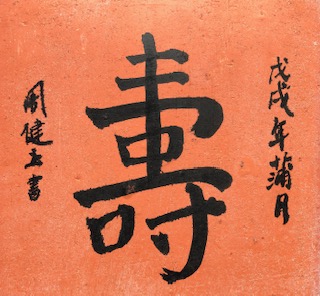 戊戌年蒲月
壽
周健書